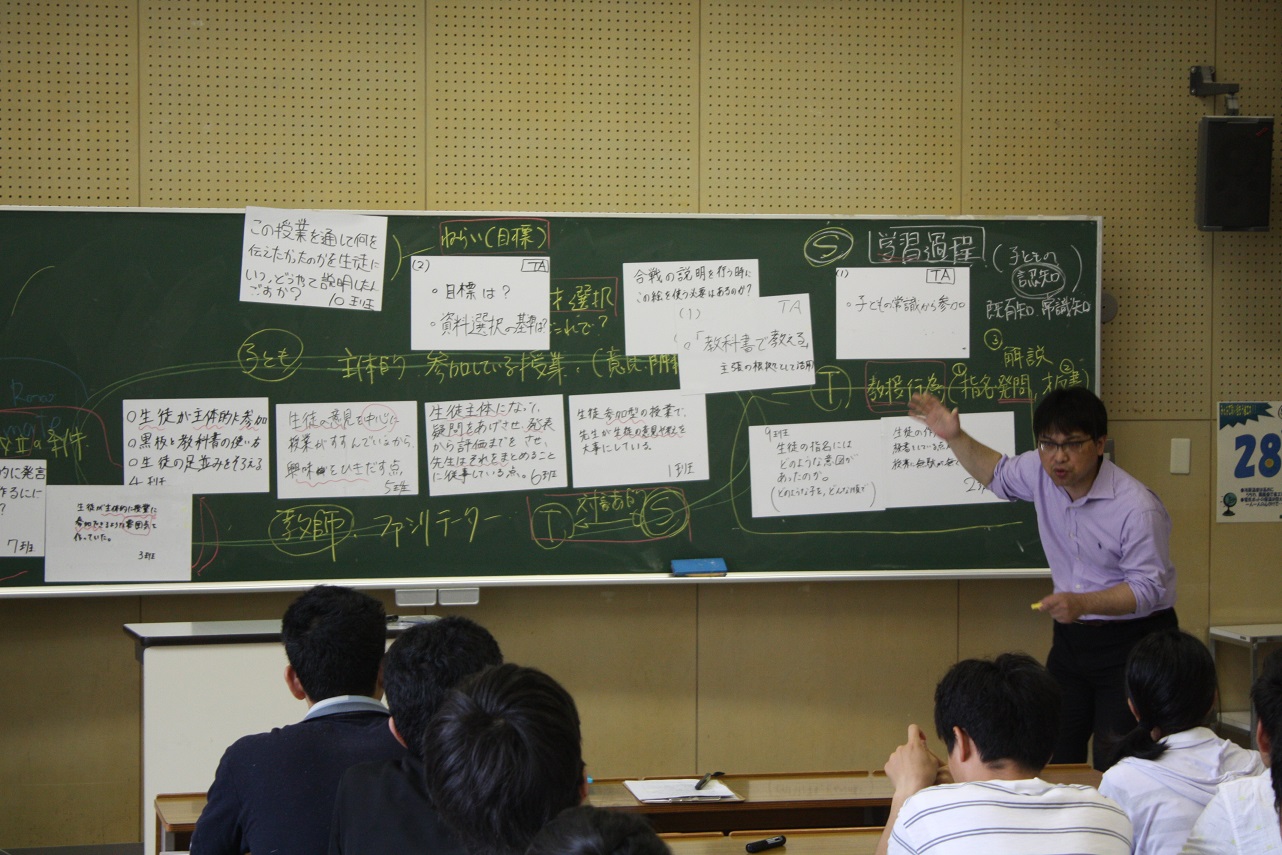 この授業を通して何を
伝えたかったのかを生徒に
いつ、どうやって説明したん
ですか?
10班
ねらい(目標)
(2)
TA
・目標は?
・資料選択の基準は?
選択
これで?
合戦の説明を行う時に
この絵を使う必要はあるのか?
(1)
TA
「教科書で教える」
主張の根拠として活用
S
学習過程
(子どもの
認知)
既有知、常識知
(1)
TA
・子どもの常識から参加
③
解説
子ども
主体的 参加している授業.
T
教授行為
(①指名、発問、板書)②
件
○生徒が主体的に参加
○黒板と教科書の使い方
○生徒の足並みをそろえる
4班
生徒の意見を中心に
授業がすすんでいるから、
興味をひきだす点。
5班
生徒主体になって、
疑問をあげさせ、発表
から評価までをさせ、
先生はそれをまとめること
に従事している点。6班
生徒参加型の授業で、
先生が生徒の意見や
大事にしている。
1班
9班
生徒の指名には
どのような意図が
あったのか。
(どのような子を、どんな順で)
生徒の
的に発言
作るにに
?
7班
生徒が主体的に授業に
参加できるような雰囲気を
作っていた。
3班
教師.ファシリテーター
T
S
28